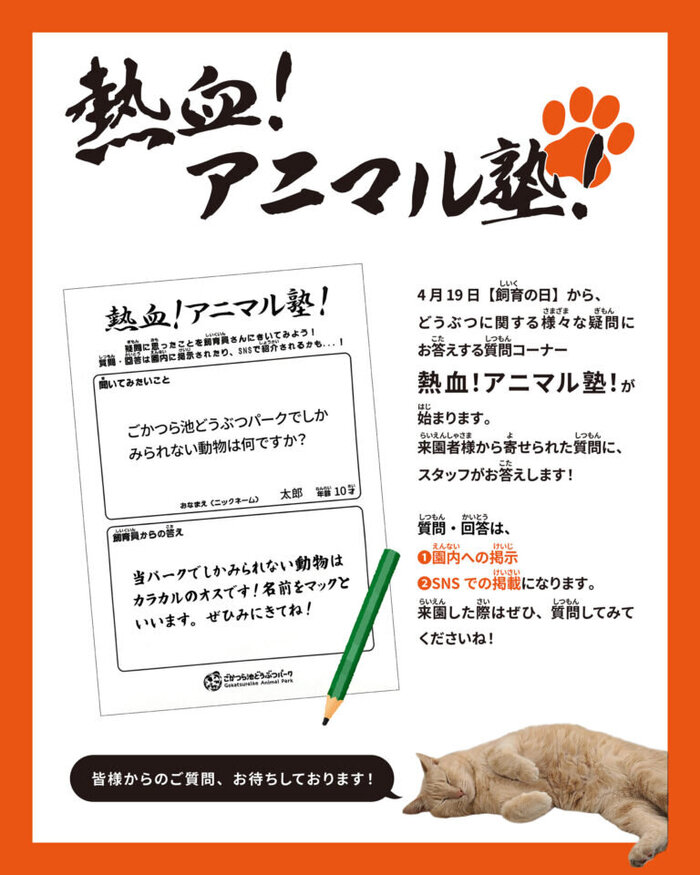 熱血!
アニマル塾!
熱血!アニマル塾!
疑問に思ったことを飼育員さんにきいてみよう!
質問・回答は園内に掲示されたり、SNSで紹介されるかも...!
聞いてみたいこと
ごかつら池どうぶつパークでしか
みられない動物は何ですか?
おなまえ(ニックネーム) 太郎 年齢 10才
飼育員からの答え
当パークでしかみられない動物は
カラカルのオスです!名前をマックと
いいます。ぜひみにきてね!
ごかつら池どうぶつパーク
Gokatsuraike Animal Park
4月19日【飼育の日】から、
どうぶつに関する様々な疑問に
お答えする質問コーナー
熱血!アニマル塾!が
始まります。
来園者様から寄せられた質問に、
スタッフがお答えします!
質問・回答は、
❶園内への掲示
❷SNSでの掲載になります。
来園した際はぜひ、質問してみて
くださいね!
皆様からのご質問、お待ちしております!